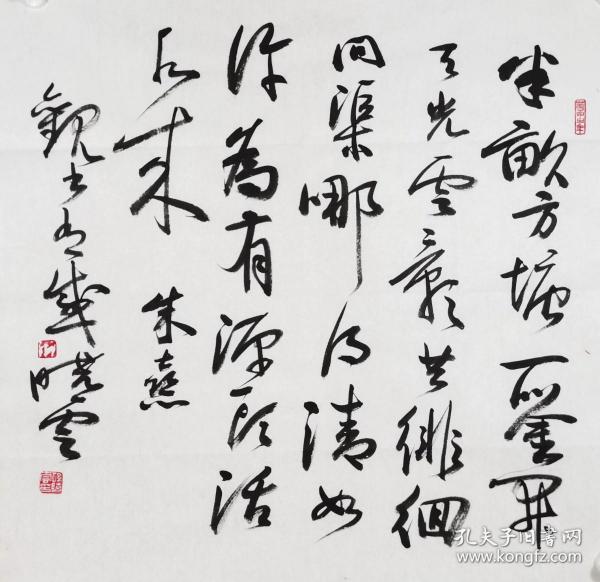 半畝方塘一鑒開
天光雲影共徘徊
問渠哪得清如
許為有源頭活
水來 朱熹
觀書有感 曉雲
孔夫子旧书网
www.kongfz.com